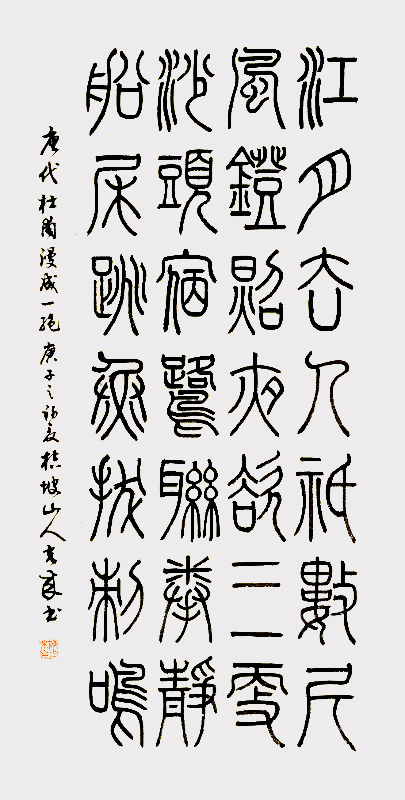 江月去人祇數尺
風鐙照夜欲三更
沙頭宿鷺聯拳靜
船尾跳魚拔刺鳴
唐代杜甫漫成一絕 庚子之初夏桔坡山人書